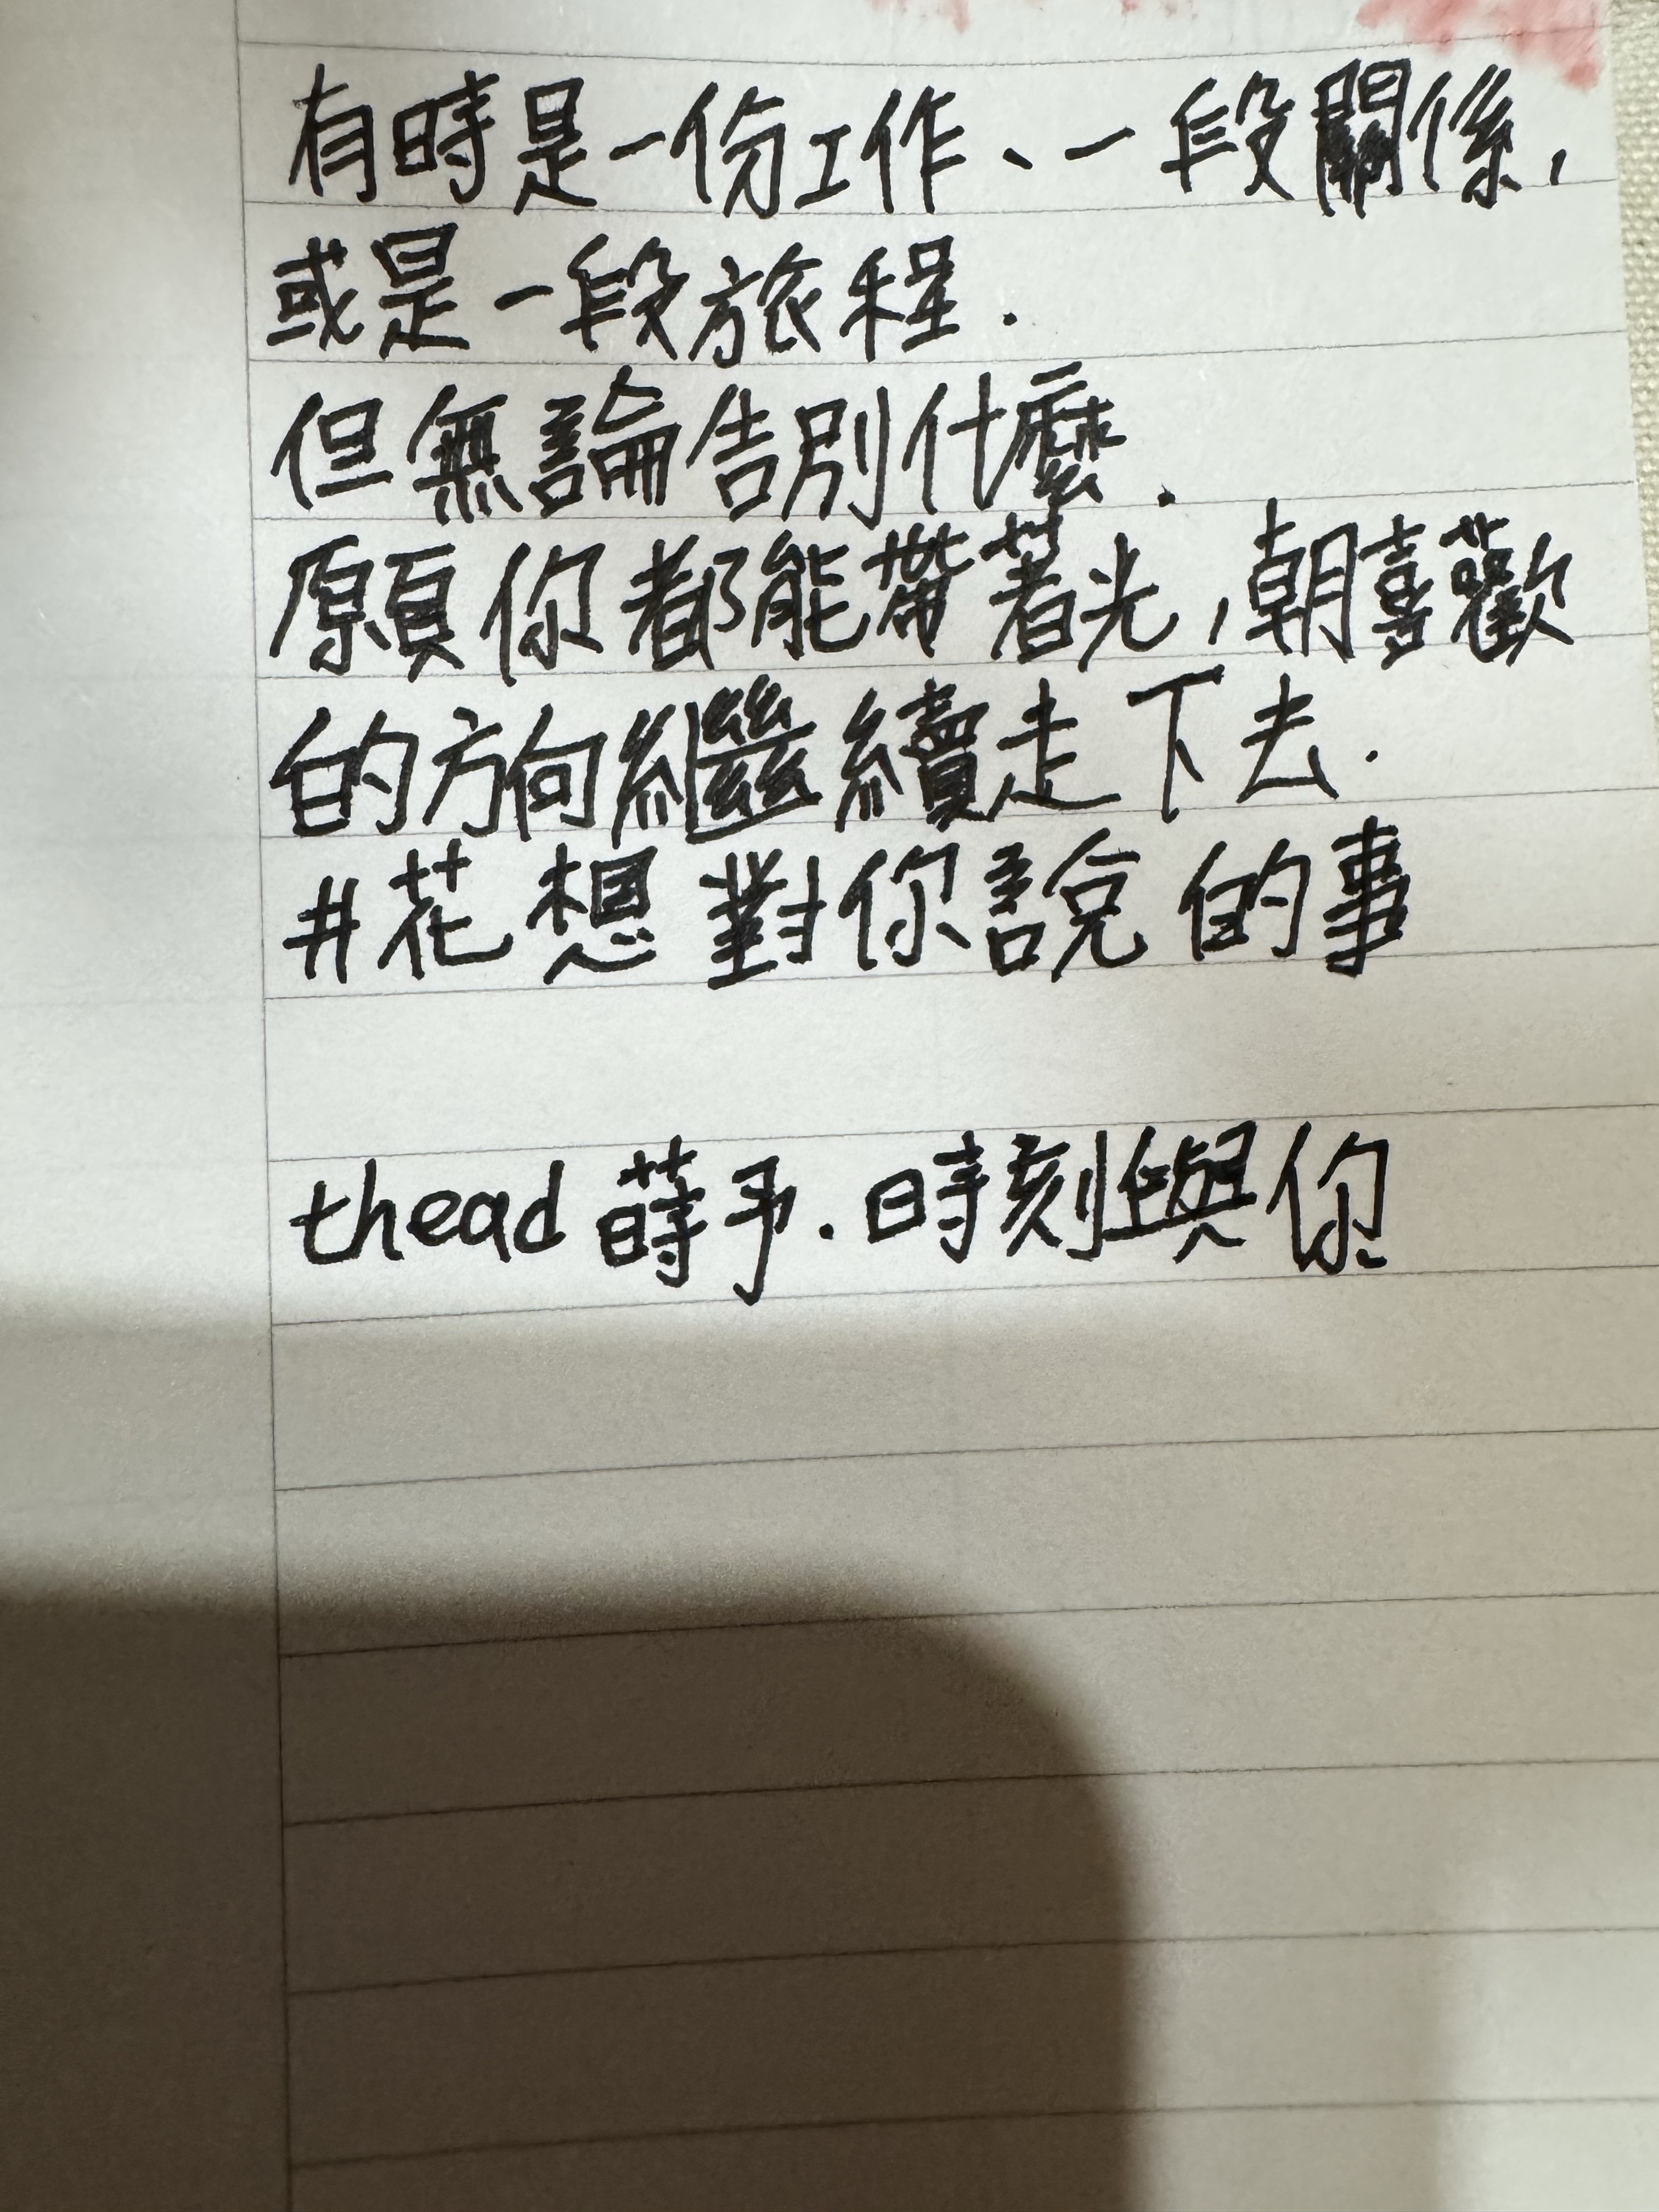 有時是一份工作、一段關係，
或是一段旅程.
但無論告別什麼.
願你都能帶著光，朝喜歡
的方向繼續走下去.
#花想對你說的事
thead 蒔予.時刻與你